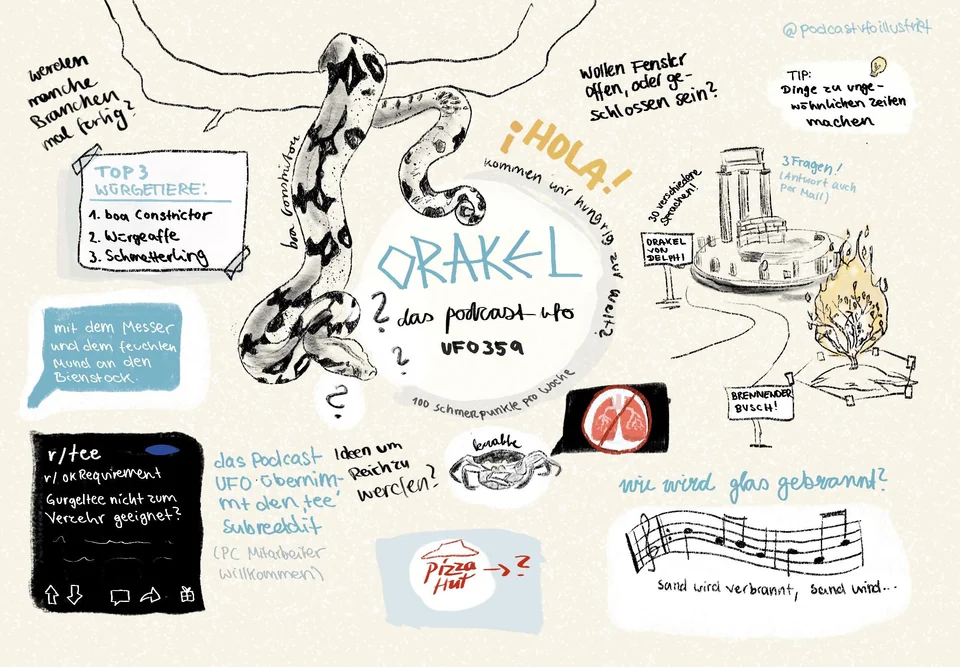 @podcastufoillustriert
werden
manche
Branchen
mal fertig?
Wollen Fenster
offen, oder ge-
schlossen sein?
TIP:
Dinge zu unge-
wöhnlichen Zeiten
machen
¡HOLA!
kommen wir hungrig zur Welt?
TOP 3
WÜRGETIERE:
1. boa Constrictor
2. Würgeaffe
3. Schmetterling
boa constrictor
30 verschiedene
Sprachen!
3 Fragen!
(Antwort auch
per Mail)
ORAKEL
VON
DELPHI
ORAKEL
das podcast ufo
UFO359
?
?
?
100 schmerpunkte pro Woche
mit dem Messer
und dem feuchten
Mund an den
Bienstock.
BRENNENDER
BUSCH!
r/tee
r/okRequirement
Gurgeltee nicht zum
Verzehr geeignet?
das Podcast
UFO übernim-
mt den 'tee'
subreddit
(PC Mitarbeiter
willkommen)
Ideen um
Reich zu
werden?
krabbe
Pizza
Hut → ?
wie wird glas gebrannt?
sand wird verbrannt, sand wird...